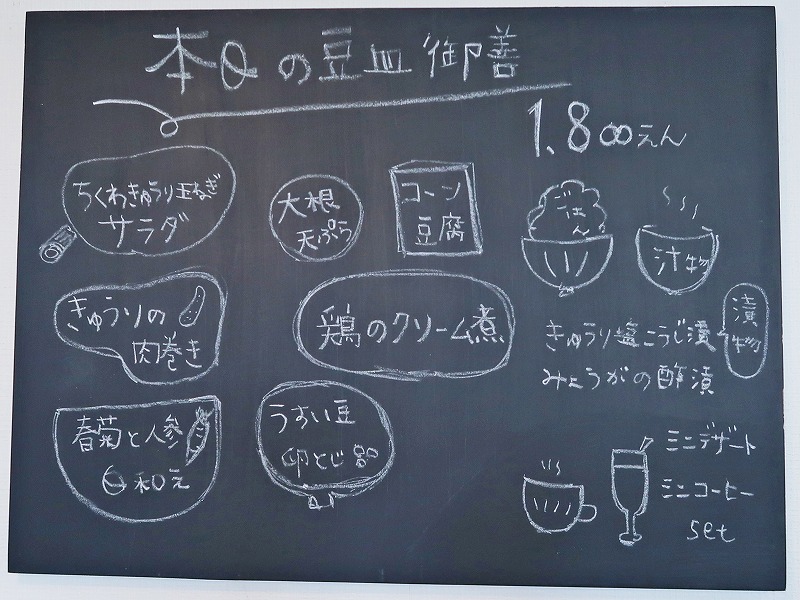 本日の豆皿御善
1.800えん
ちくわきゅうり玉ねぎ
サラダ
大根
天ぷら
コーン
豆腐
ごはん
汁物
きゅうりの
肉巻き
鶏のクリーム煮
きゅうり塩こうじ漬
みょうがの酢漬
漬物
春菊と人参
白和え
うすい豆
卵とじ
ミニデザート
ミニコーヒー
set